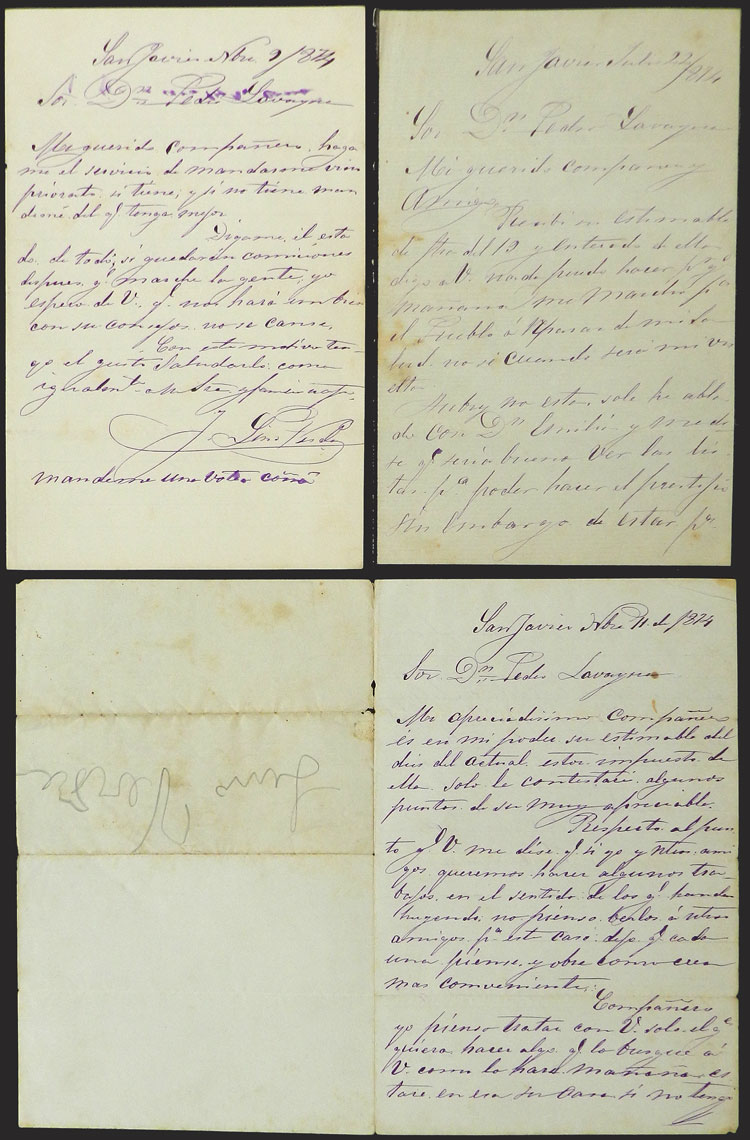 San Javier Nbre 9/874
Sor Dn Pedro Lavagna
Mi querido compañero haga
me el servicio de mandarme vino
priorato si tiene, y si no tiene man
deme del q.e tenga mejor
Digame, el esta
do de todo, si quedaran comiciones
despues q.e marche la gente, yo
espero de V. q.e nos hará
con su consejos no se canse,
Con este motivo ten
go el gusto Saludarlo como
igualmte
J. Lino Verde
mandeme una
San Javier Julio 22/874
Sor Dn Pedro Lavagna
Mi querido compañero y
Amigo
Recibi su estimable
de fha del 19 y enterado de ella
digo a V. nada puedo hacer pr q.e
mañana me marcho pa
el Pueblo á Reparar de mi sa
lud, no sé cuando será mi vu
elta
Aubry no esta, solo he abla
do con Dn Emilio y me di
se q.e seria bueno ver las lis
tas pa poder hacer el
sin Embargo de estar pr
Lino Verde
San Javier Nbre 11 de /874
Sor Dn Pedro Lavagna
Mi apreciadisimo compañero
és en mi poder su estimable del
dies del actual, estoi impuesto de
ella solo le contestaré algunos
puntos de su muy apreciable.
Respecto al pun
to q.e V. me dise q.e si yo y ntros ami
gos queremos hacer algunos tra
bajos, en el sentido de los q.e handa
huyendo no pienso berlos á ntros
amigos pa este caso dejo q.e cada
uno piense y obre como crea
mas combeniente,
Compañero
yo pienso tratar con V. solo el q.e
quiera hacer algo q.e lo busque á
V. como lo haré mañana es
taré en esa su casa si no tengo